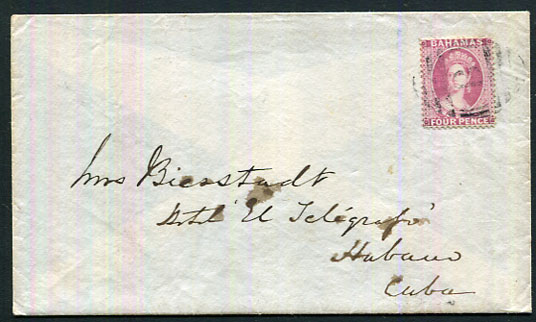 BAHAMAS
FOUR PENCE
Mrs Bierstadt
Hotel "El Telégrafo"
Habana
Cuba